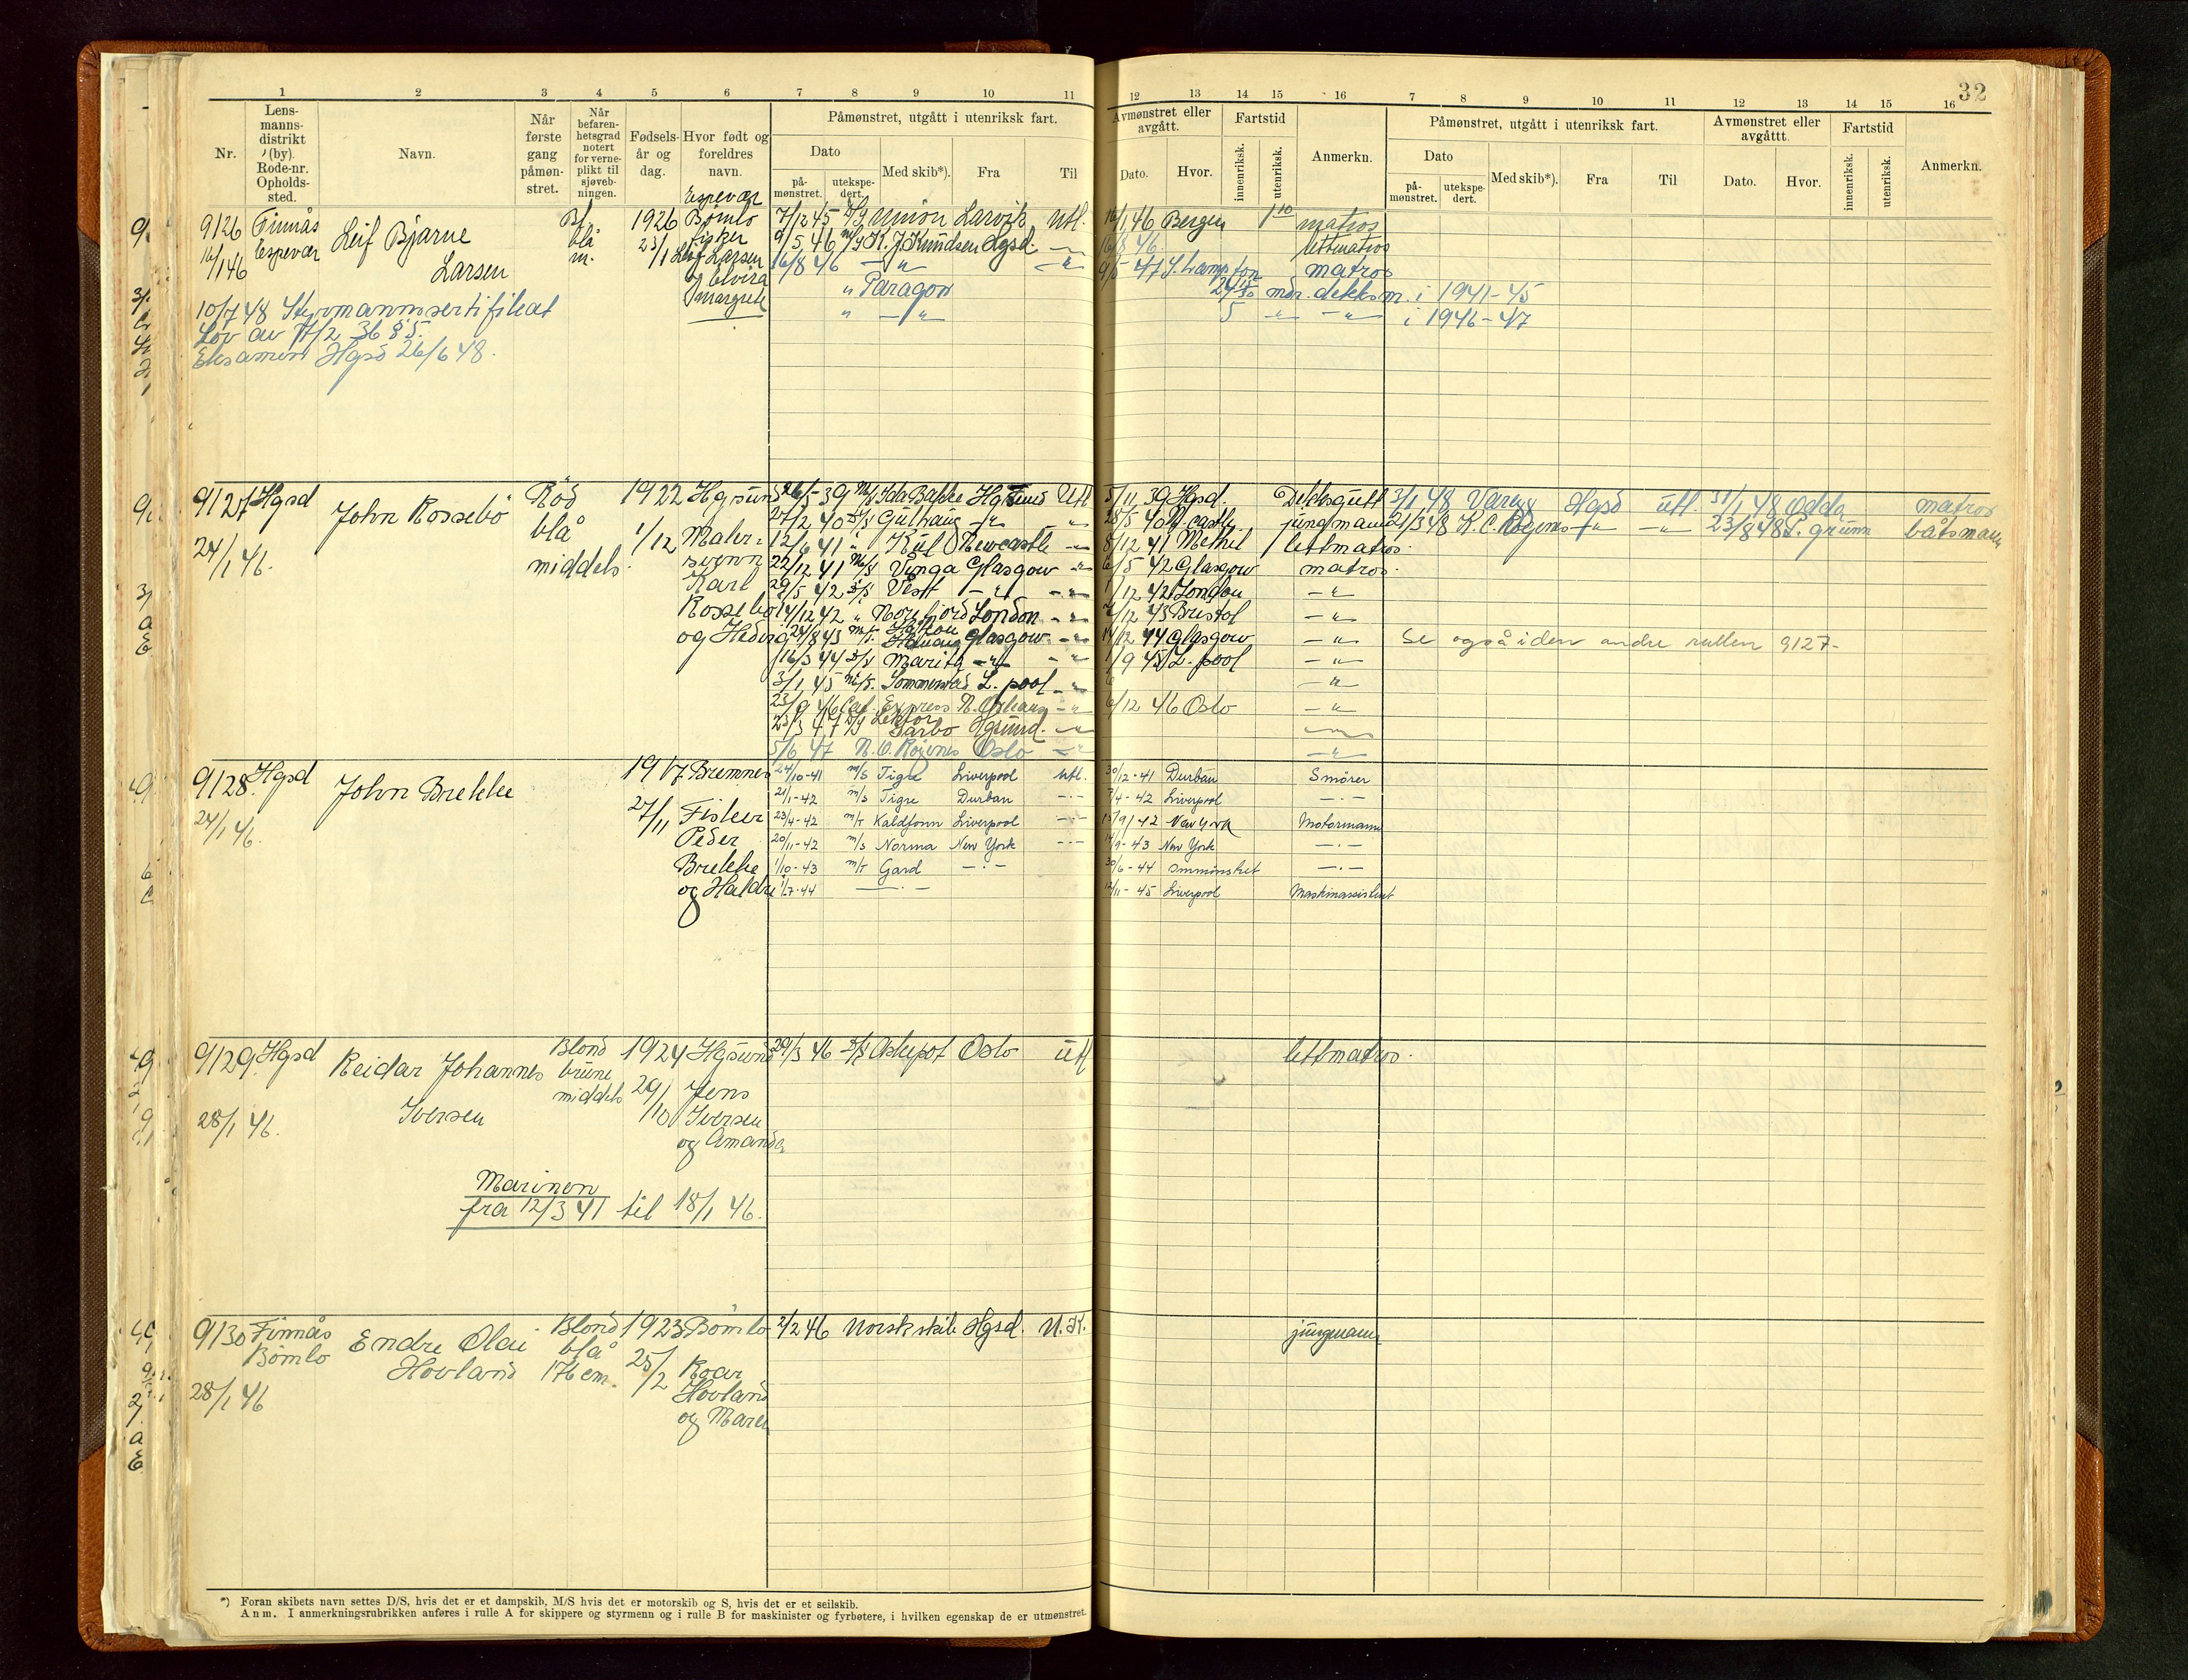 32
1 2 3 4 5 6 7 8 9 10 11 12 13 14 15 16 7 8 9 10 11 12 13 14 15 16
Nr.
Lens-
manns-
distrikt
(by).
Rode-nr.
Opholds-
sted.
Navn.
Når
første
gang
påmøn-
stret.
Når
befaren-
hetsgrad
notert
for verne-
plikt til
sjøveb-
ningen.
Fødsels-
år og
dag.
Hvor født og
foreldres
navn.
Påmønstret, utgått i utenriksk fart.
Dato
på-
mønstret.
utekspe-
dert.
Med skib*).
Fra
Til
Avmønstret eller
avgått.
Dato.
Hvor.
Fartstid
innenriksk.
utenriksk.
Anmerkn.
Påmønstret, utgått i utenriksk fart.
Dato
på-
mønstret.
utekspe-
dert.
Med skib*).
Fra
Til
Avmønstret eller
avgåttt.
Dato.
Hvor.
Fartstid
innenriksk.
utenriksk.
Anmerkn.
9126 Finnås
Espevær
16/1 46
Leif Bjarne
Larsen
Bl.
blå
m.
1926
23/1
Espevær
Bømlo
fisker
Leif Larsen
og Elvira
Margrete
7/12 45 Union Larvik Utl. 16/1 46 Bergen matros
9/5 46 K. J. Knudsen Hgsd. — 16/8 46. lettmatros
16/8 46 — " — — " — 9/5 - 47 S. hampton matros
" Paragon mdr. dekksm. i 1941-45
" — " — 5 — " — — " — i 1946-47
10/7 48 Styrmannssertifikat
Lov av 17/2 36 § 5.
Eksamen Hgsd 26/6 48.
9127 Hgsd
24/1 46.
John Rossebö
Röd
blå
middels.
1922
1/12
Hgsund
Maler-
svenn
Karl
Rossebö
og Hedvig
26/5 - 39 M/S Ida Bakke Hgsund Utl 5/11 39 Hgsd. Dekksgutt 3/1 48 Varegg Hgsd utl. 31/1 48 Odda matros
27/2 40 Gulhaug — " — " 28/5 40 N. castle jungmann 21/3 48 K. C. Rogenes — " — — " — 23/8 48 båtsmann
12/6 41 " Kul Newcastle — " 8/12 41 Methil lettmatros.
22/12 41 M/S Vinga Glasgow — " 6/5 42 Glasgow matros.
29/5 42 Vest — " — — " — 1/12 42 London — " —
14/12 42 " Norefjord London — " — 7/12 43 Bristol — " —
43 Glasgow — " — 14/12 44 Glasgow — " — Se også i den andre rullen 9127-
16/3 44 Marita — " — — " — 1/9 45 L. pool — " —
3/1 45 L. pool — " — — " —
23/9 46 Cal. Express N. Orleans — " — 6/12 46 Oslo — " —
25/3 47 Lektor Garbo Hgsund. — " —
5/6 47 Oslo — " — — " —
9128. Hgsd
24/1 46.
John Brekke
1917
27/11
Bremnes
Fisker
Peder
Brekke
og Haldis
24/10-41 M/S Tigre Liverpool utl. 30/12-41 Durban Smörer
21/1-42 M/S Tigre Durban — · — 7/4-42 Liverpool — · —
23/4-42 M/T Kaldfonn Liverpool — · — 15/9 42 New York Motormann
20/11-42 M/S Norma New York — · — 14/9-43 New York — · —
1/10-43 M/T Gard — · — 30/6-44 ommönstret — · —
1/7-44 — · — 12/11-45 Liverpool Maskinassistent
9129. Hgsd
28/1 46.
Reidar Johannes
Iversen
Blond
brune
middels
1924
29/10
Hgsund
Jens
Iversen
og Amanda
29/3 46 Askepot Oslo utl lettmatros.
Marinen
fra 12/3 41 til 18/1 46.
9130 Finnås
Bømlo
28/1 46
Endre Olai
Hovland
Blond
blå
176 cm.
1923
25/2
Bömlo
Roar
Hovland
og Maren
2/2 46 Norsk skib Hgsd. U. K. jungmann
*) Foran skibets navn settes D/S, hvis det er et dampskib, M/S hvis det er motorskib og S, hvis det er et seilskib.
Anm. I anmerkningsrubrikken anføres i rulle A for skippere og styrmenn og i rulle B for maskinister og fyrbøtere, i hvilken egenskap de er utmønstret.